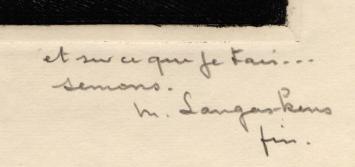 et sur ce que je tais...
semons.
M. Langaskens
fin.